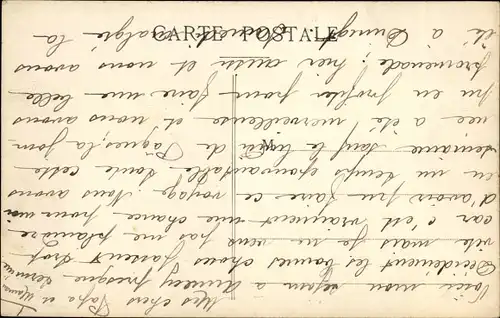 CARTE POSTALE
Mes chers Papa et Maman
Voici mon séjour à Annecy presque terminé
Décidément les bonnes choses passent trop
vite mais je ne veux pas me plaindre
car c'est vraiment une chance pour moi
d'avoir pu faire ce voyage. Nous avons
eu un temps épouvantable toute cette
semaine sauf le lundi de Pâques, la jour-
née a été merveilleuse et nous avons
pu en profiter pour faire une belle
promenade; hier aussi et nous avons
été à Duingt. malgré la